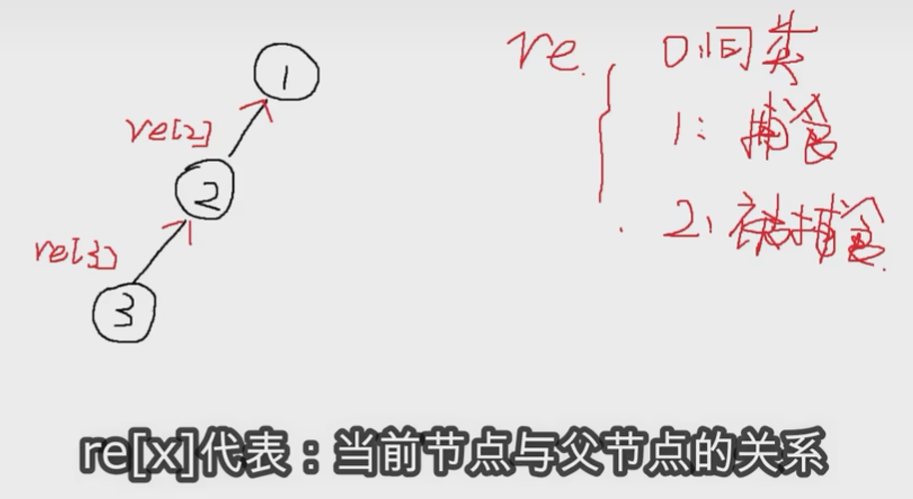 ①
re[2]
②
re[3]
③
re
0:同类
1:捕食
2:被捕食
re[x]代表：当前节点与父节点的关系